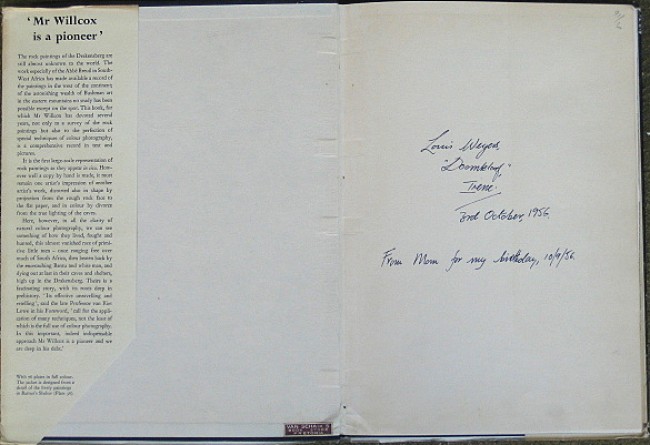 'Mr Willcox
is a pioneer'
The rock paintings of the Drakensberg are
still almost unknown to the world. The
work especially of the Abbé Breuil in South-
West Africa has made available a record of
the paintings in the west of the continent;
of the astonishing wealth of Bushman art
in the eastern mountains no study has been
possible except on the spot. This book, for
which Mr Willcox has devoted several
years, not only to a survey of the rock
paintings but also to the perfection of
special techniques of colour photography,
is a comprehensive record in text and
pictures.
It is the first large-scale representation of
rock paintings as they appear in situ. How-
ever well a copy by hand is made, it must
remain one artist's impression of another
artist's work, distorted also in shape by
projection from the rough rock face to
the flat paper, and in colour by divorce
from the true lighting of the caves.
Here, however, in all the clarity of
natural colour photography, we can see
something of how they lived, fought and
hunted, this almost vanished race of primi-
tive little men – once ranging free over
much of South Africa, then beaten back by
the encroaching Bantu and white man, and
dying out at last in their caves and shelters,
high up in the Drakensberg. Theirs is a
fascinating story, with its roots deep in
prehistory. 'Its effective unravelling and
retelling', said the late Professor van Riet
Lowe in his Foreword, 'call for the appli-
cation of many techniques, not the least of
which is the full use of colour photography.
In this important, indeed indispensable
approach Mr Willcox is a pioneer and we
are deep in his debt.'
With 76 plates in full colour.
The jacket is designed from a
detail of the frieze paintings
in Battle Shelter (Plate
VAN SCHAIK'S
BOOK STORE
PRETORIA
Louis
Irene.
2nd October, 1956.
From Mom for my birthday, 10/9/56.